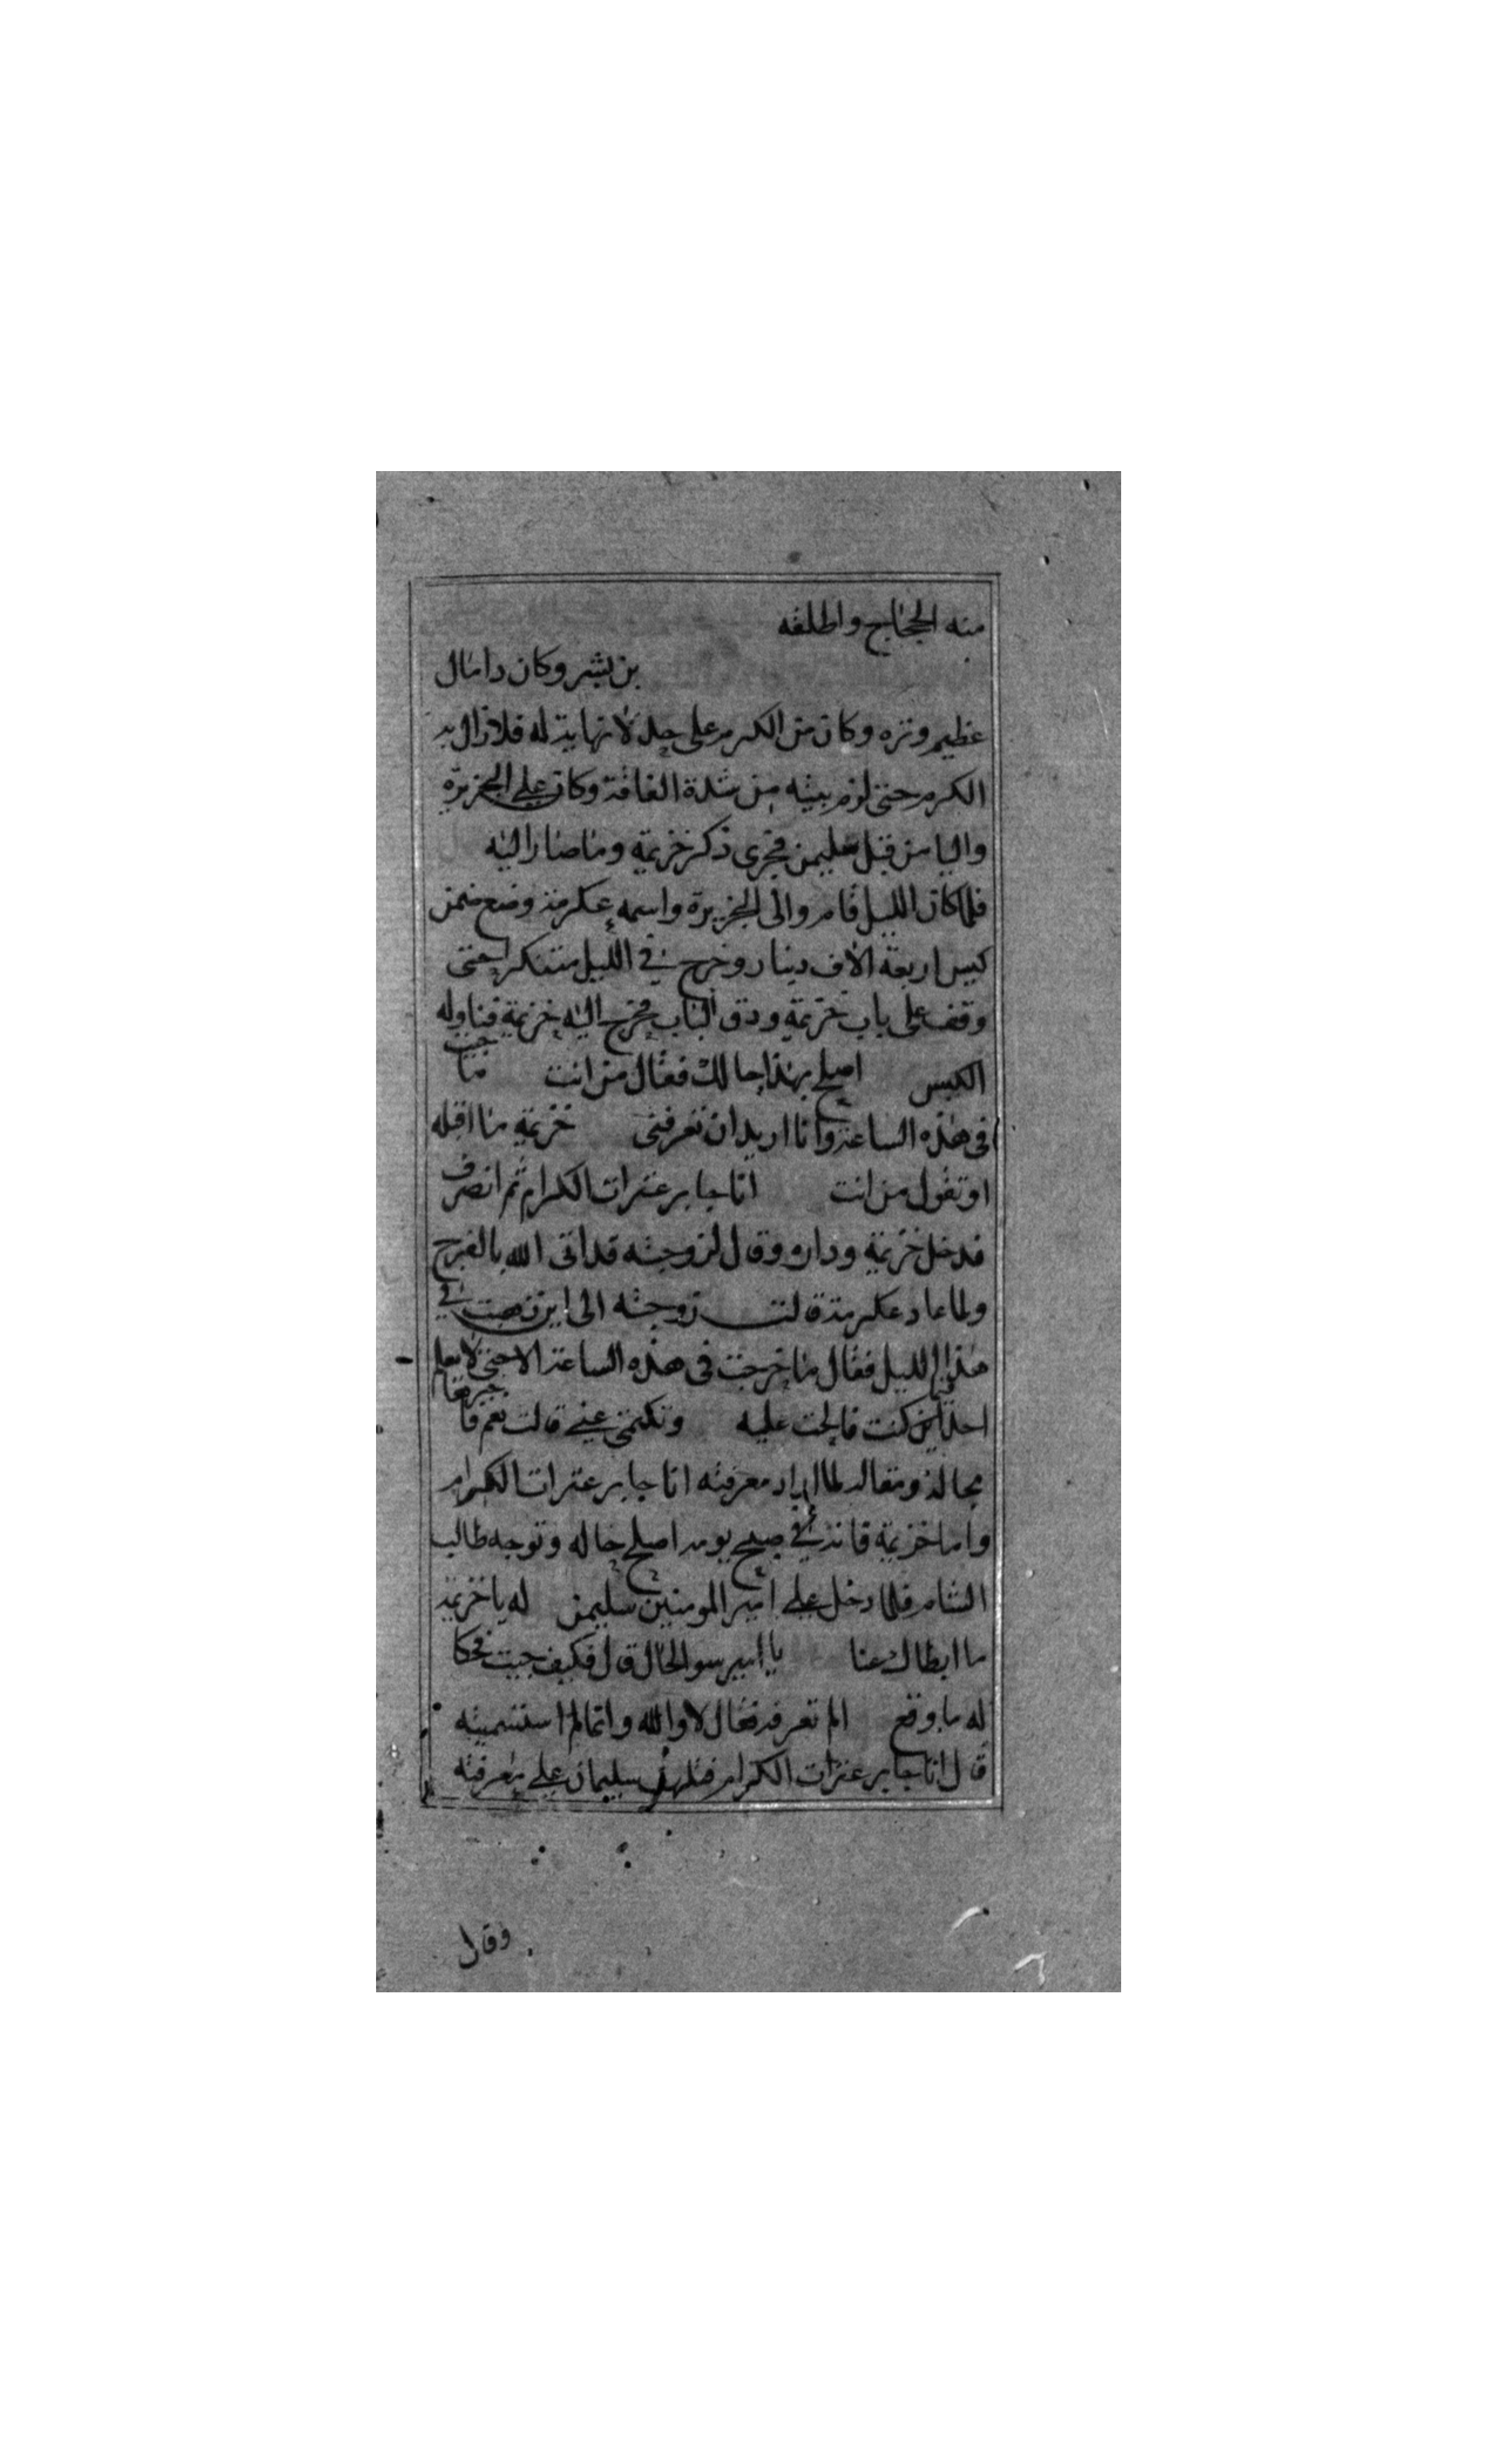 منه الحجاج واطلقه
بن بشر وكان ذا مال
عظيم وتره وكان من الكرم على جد لا نهاية له فلازال به
الكرم حتى لزم بيته من شدة الفاقة وكان على الجزيرة
واليا من قبل سليمن فجرى ذكر خزيمة وما صار اليه
فلما كان الليل قام والى الجزيرة واسمه عكرمة وضع ضمن
كيس اربعة الاف دينار وخرج في الليل متنكرا حتى
وقف على باب خزيمة ودق الباب فخرج اليه خزيمة فناوله
الكيس اصلح بهذا حالك فقال من انت ما جيت
في هذه الساعة وانا اريد ان تعرفني خزيمة ما اقبله
او تقول من انت انا جابر عثرات الكرام ثم انصرف
فدخل خزيمة وداره وقال لزوجته قد اتى الله بالفرج
ولما عاد عكرمة قالت زوجته الى اين ذهبت في
هذا الليل فقال ما خرجت في هذه الساعة الا حتى لا يعلم
احد اين كنت فالحت عليه وتكتمي عني قالت نعم فاخبرها
بحاله ومقاله لما اراد معرفته انا جابر عثرات الكرام
واما خزيمة فانه في صبح يومه اصلح حاله وتوجه طالب
الشام فلما دخل على امير المومنين سليمن له يا خزيمة
ما ابطاك عنا يا امير سو الحال قال فكيف جيت فحكا
له ما وقع الم تعرفه فقال لا والله وانما لما استسميته
قال انا جابر عثرات الكرام فتلهف سليمان على معرفته
وقال